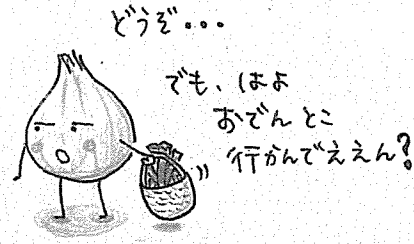 どうぞ・・・
でも、はよ
おでんとこ
行かんでええん?